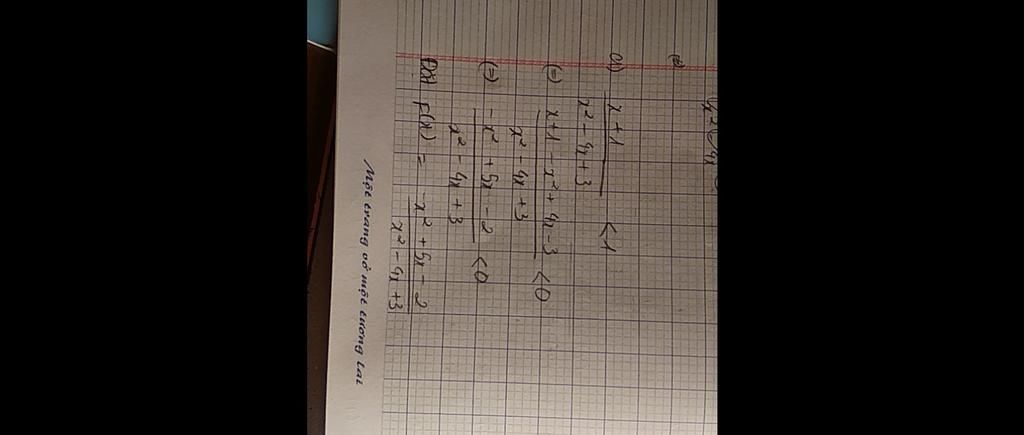 a) \frac{x+1}{x^2-4x+3} < 1
(=) \frac{x+1-x^2+4x-3}{x^2-4x+3} < 0
(=) \frac{-x^2+5x-2}{x^2-4x+3} < 0
Đặt f(x) = \frac{-x^2+5x-2}{x^2-4x+3}
Một trang vở một tương lai